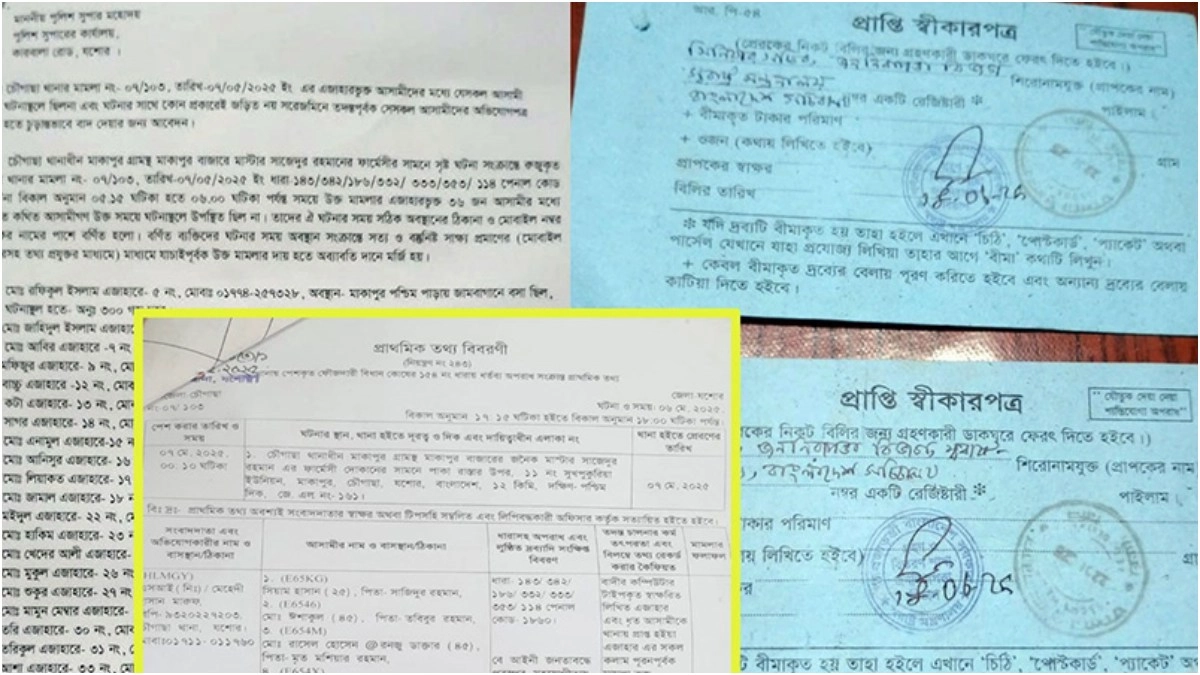 মাননীয় পুলিশ সুপার মহোদয়
পুলিশ সুপারের কার্যালয়,
কারবালা রোড, যশোর ।
চৌগাছা থানার মামলা নং- ০৭/১০৩, তারিখ-০৭/০৫/২০২৫ ইং এর এজাহারভুক্ত আসামীদের মধ্যে যেসকল আসামী
ঘটনাস্থলে ছিলনা এবং ঘটনার সাথে কোন প্রকারেই জড়িত নয় সরেজমিনে তদন্তপূর্বক সেসকল আসামীদের অভিযোগপত্র
হতে চুড়ান্তভাবে বাদ দেয়ার জন্য আবেদন।
চৌগাছা থানাধীন মাকাপুর গ্রামস্থ মাকাপুর বাজারে মাস্টার সাজেদুর রহমানের ফার্মেসীর সামনে সৃষ্ট ঘটনা সংক্রান্তে রুজুকৃত
থানার মামলা নং- ০৭/১০৩, তারিখ-০৭/০৫/২০২৫ ইং ধারা-১৪৩/৩৪২/১৮৬/৩৩২/ ৩৩৩/৩৫৩/ ১১৪ পেনাল কোড
না বিকাল অনুমান ০৫.১৫ ঘটিকা হতে ০৬.০০ ঘটিকা পর্যন্ত সময়ে উক্ত মামলার এজাহারভুক্ত ৩৬ জন আসামীর মধ্যে
ত কথিত আসামীগণ উক্ত সময়ে ঘটনাস্থলে উপস্থিত ছিল না। তাদের ঐ ঘটনার সময় সঠিক অবস্থানের ঠিকানা ও মোবাইল নম্বর
র নামের পাশে বর্ণিত হলো। বর্ণিত ব্যক্তিদের ঘটনার সময় অবস্থান সংক্রান্তে সত্য ও বস্তুনিষ্ট সাক্ষ্য প্রমাণের (মোবাইল
রসহ তথ্য প্রযুক্তর মাধ্যমে) মাধ্যমে যাচাইপূর্বক উক্ত মামলার দায় হতে অব্যাবতি দানে মর্জি হয়।
মোঃ রফিকুল ইসলাম এজাহারে- ৫ নং, মোবাঃ ০১৭৭৪-২৫৭৩২৮, অবস্থান- মাকাপুর পশ্চিম পাড়ায় জামবাগানে বসা ছিল,
ঘটনাস্থল হতে- অনুঃ ৩০০
মোঃ জাহিদুল ইসলাম এজাহারে
মোঃ আবির এজাহারে -৭ নং
মফিজুর এজাহারে- ৯ নং, মো
বাচ্চু এজাহারে -১২ নং, মোব
কটা এজাহারে- ১৩ নং, মো
সাগর এজাহারে- ১৪ নং, মো
মোঃ এনামুল এজাহারে-১৫ ন
মোঃ আনিসুর এজাহারে- ১৬
মোঃ লিয়াকত এজাহারে- ১৭
মোঃ জামাল এজাহারে- ১৮ ন
মইদুল এজাহারে- ২২ নং, মো
মোঃ হাকিম এজাহারে- ২৩ ন
মোঃ খেদের আলী এজাহারে-
মোঃ মুকুল এজাহারে- ২৬ নং
মোঃ শুকুর এজাহারে- ২৯ নং
মোঃ মামুন মেম্বার এজাহারে-
তরি এজাহারে- ৩০ নং, মোব
তরিকুল এজাহারে- ৩১ নং,
আশা এজাহারে- ৩৩ নং, মো
প্রাথমিক তথ্য বিবরণী
(নিয়ন্ত্রণ নং ২৪৩)
পেশকৃত ফৌজদারী বিধান কোষের ১৫৪ নং ধারায় ধর্তব্য অপরাধ সংক্রান্ত প্রাথমিক তথ্য
চৌগাছা
জেলা যশোর
নং: ০৭/ ১০৩
ঘটনা ও সময়: ০৬ মে, ২০২৫,
বিকাল অনুমান ১৭.১৫ ঘটিকা হইতে বিকাল অনুমান ১৮.০০ ঘটিকা পর্যন্ত।
পেশ করার তারিখ ও সময়
ঘটনার স্থান, থানা হইতে দূরত্ব ও দিক এবং দায়িত্বাধীন এলাকা নং
থানা হইতে প্রেরণের তারিখ
০৭ মে, ২০২৫,
০০.১০ ঘটিকা
১. চৌগাছা থানাধীন মাকাপুর গ্রামস্থ মাকাপুর বাজারের জনৈক মাস্টার সাজেদুর
রহমান এর ফার্মেসী দোকানের সামনে পাকা রাস্তার উপর, ১১ নং সুখপুকুরিয়া
ইউনিয়ন, মাকাপুর, চৌগাছা, যশোর, বাংলাদেশ, ১২ কিমি. দক্ষিণ-পশ্চিম
দিক, জে. এল নং- ১৬১।
০৭ মে, ২০২৫
বিঃ দ্রঃ- প্রাথমিক তথ্য অবশ্যই সংবাদদাতার স্বাক্ষর অথবা টিপসহি সম্বলিত এবং লিপিবদ্ধকারী অফিসার কর্তৃক সত্যায়িত হইতে হইবে।
সংবাদদাতা এবং
অভিযোগকারীর নাম ও
বাসস্থান/ঠিকানা
আসামীর নাম ও বাসস্থান/ঠিকানা
ধারাসহ অপরাধ এবং
লুণ্ঠিত দ্রব্যাদি সংক্ষিপ্ত
বিবরণ
তদন্ত চালনার কর্ম
তৎপরতা এবং
বিলম্বে তথ্য রেকর্ড
করার কৈফিয়ত
মামলার
ফলাফল
HLMGY)
এসআই (নিঃ) / মেহেদী
হাসান মারুফ,
বিপি- ৯৩২০২২৭২০৩,
চৌগাছা থানা, যশোর।
মোবাঃ০১৭১১- ০১১৭৬০
১. (E65KG)
সিয়াম হাসান (২৫), পিতা- সাজিদুর রহমান,
২. (E6546)
মোঃ ঈশাকুল (৪৫), পিতা- তবিবুর রহমান,
৩. (E654M)
মোঃ রাসেল হোসেন @রনজু ডাক্তার (৪৫),
পিতা-মৃত মশিয়ার রহমান,
৪. (E654Y)
ধারা- ১৪৩/ ৩৪২/
১৮৬/ ৩৩২/ ৩৩৩/
৩৫৩/ ১১৪ পেনাল
কোড- ১৮৬০।
বে আইনী জনতাবদ্ধে
বাদীর কম্পিউটার
টাইপকৃত স্বাক্ষরিত
লিখিত এজাহার
এবং ধৃত আসামীকে
থানায় প্রাপ্ত হইয়া
এজাহার এর সকল
কলাম পূরনপূর্বক
আর. পি-৫৪
প্রাপ্তি স্বীকারপত্র
"যৌতুক দেয়া নেয়া
শাস্তিযোগ্য অপরাধ"
(প্রেরকের নিকট বিলির জন্য গ্রহণকারী ডাকঘরে ফেরৎ দিতে হইবে।)
শিরোনামযুক্ত (প্রাপকের নাম)
নম্বর একটি রেজিষ্টারী * পাইলাম।
+ বীমাকৃত টাকার পরিমাণ
+ ওজন (কথায় লিখিতে হইবে) গ্রাম
প্রাপকের স্বাক্ষর
বিলির তারিখ
* যদি দ্রব্যটি বীমাকৃত হয় তাহা হইলে এখানে 'চিঠি', 'পোস্টকার্ড', 'প্যাকেট' অথবা
পার্সেল যেখানে যাহা প্রযোজ্য লিখিয়া তাহার আগে 'বীমা' কথাটি লিখুন।
+ কেবল বীমাকৃত দ্রব্যের বেলায় পূরণ করিতে হইবে এবং অন্যান্য দ্রব্যের বেলায়
কাটিয়া দিতে হইবে।
প্রাপ্তি স্বীকারপত্র
"যৌতুক দেয়া নেয়া
শাস্তিযোগ্য অপরাধ"
রকের নিকট বিলির জন্য গ্রহণকারী ডাকঘরে ফেরৎ দিতে হইবে।)
শিরোনামযুক্ত (প্রাপকের নাম
নম্বর একটি রেজিষ্টারী * পাইলাম।
টাকার পরিমাণ
য় লিখিতে হইবে) গ্রাম
টি বীমাকৃত হয় তাহা হইলে এখানে 'চিঠি', 'পোস্টকার্ড', 'প্যাকেট' অ